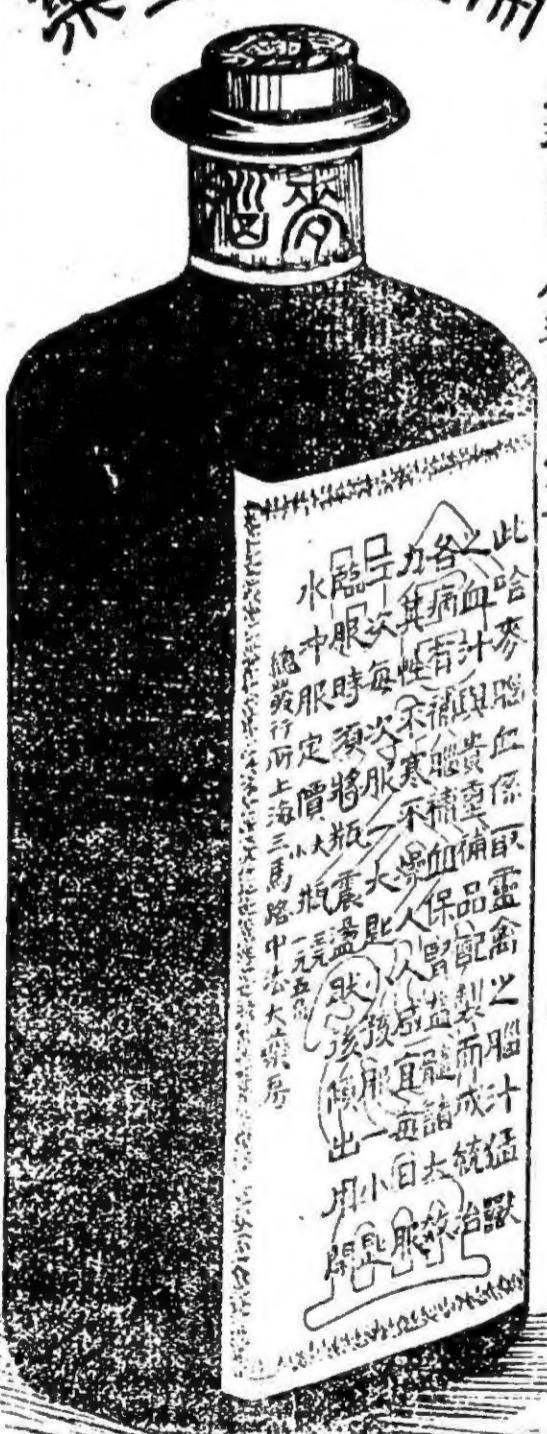 麥
此哈麥聡血係取靈禽之腦汁猛獸
之血汁與貴重補品配製而成統治
各病有補腦補血保腎益龍諸大效
力其性不寒不燥人人咸宜每日服
三次每次服一大匙孩服一小匙
臨服時須將瓶震盪狀後傾出用開
水冲服定價大瓶元小瓶一元五角
總發行所上海三馬路中法大藥房